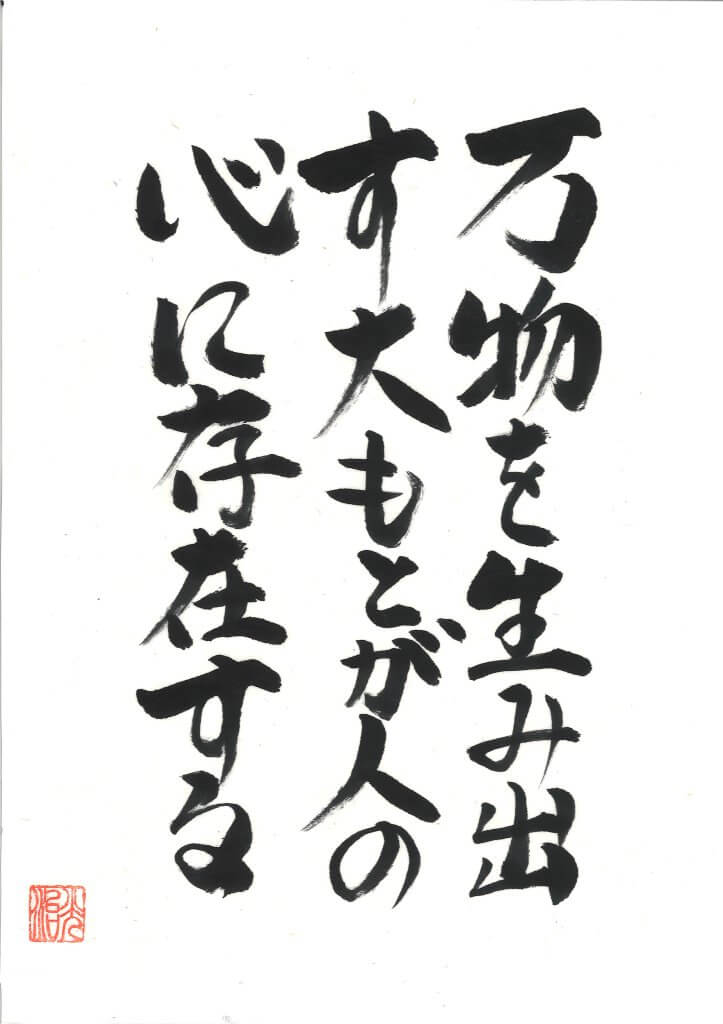 万物を生み出
す大もとが人の
心に存在する